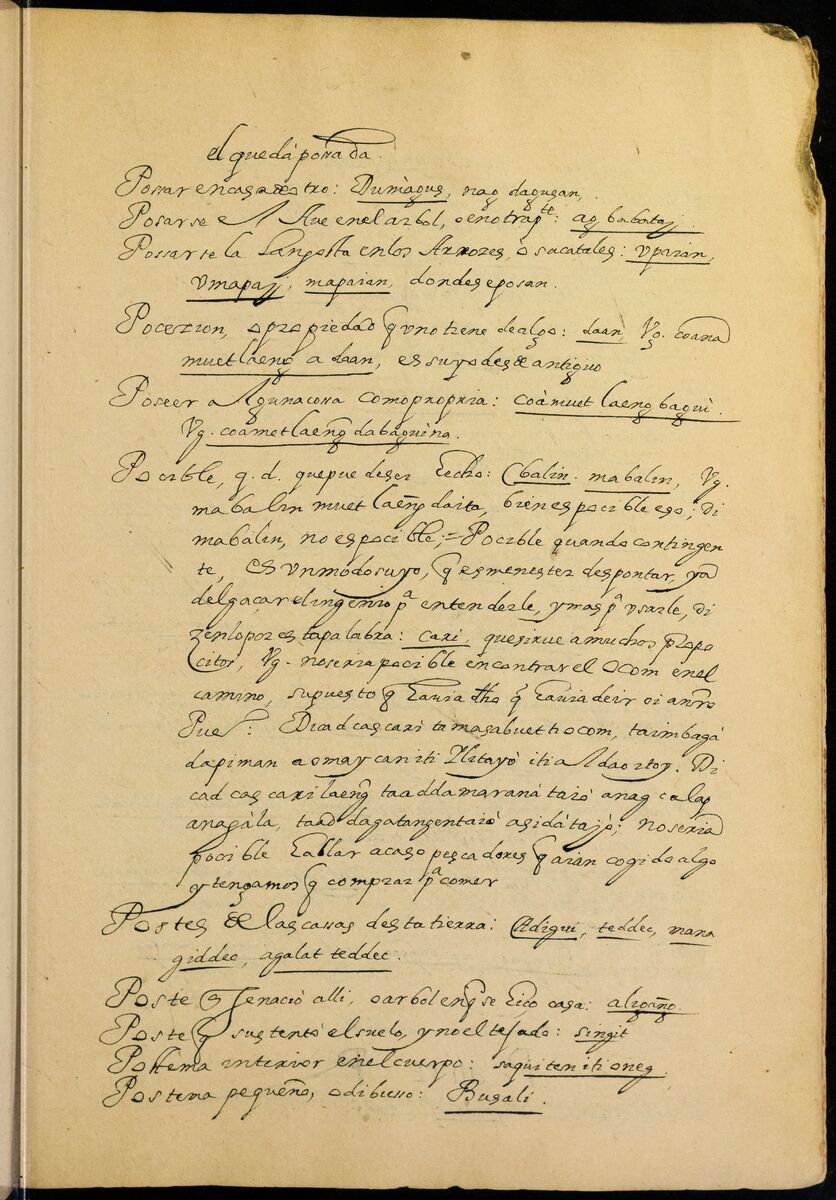 el que dá posada.
Possar en casa de otro: Dumàgus, nag dagusan,
Posarse el Ave en el arbol, o en otra pte: ag babatay
Possarse la Langosta en los Arrozes, o sacatales: vpaian,
vmapay, mapaian, donde se posan.
Pocezion, o propiedad q vno tiene de algo: daan, Vg. coana
muet laeng a daan, es suyo desde antiguo
Poseer Alguna cossa como propria: coàmuet laeng bagui
Vg. coametlaeng dabaguina.
Pocible, q. d. que puede ser hecho: balin. mabalin, Vg.
mabalin muet laeng daita, bien es pocible eso; di
mabalin, no es pocible; = Pocible quando contingen
te, es vn modo suyo, q es menester despontar, y ad
delgaçar el ingenio pa entenderle, y mas pa vsarle, di
zenlo por esta palabra: cari, que sirue a muchos propo
citos, Vg. no seria pocible encontrar el ocom en el
camino, supuesto q hauia dho q hauia de ir oi a nro
Pueo: Dicad cas cari tamasabuet ti ocom, ta imbagá
dapiman a omay can iti Ylitayò iti aldaoitoy. Di
cad cas cari laeng taadda maraná taió anag calap
anagála, taad dagatangentaió asidátajò; no seria
pocible hallar acaso pescadores q aian cogido algo
y tengamos q comprar pa comer
Postes de las cassas desta tierra: Adigui, teddec, mana
giddec, agalat teddec.
Poste q se nació alli, o arbol en q se hico casa:
Poste q sustentó el suelo, y no el tejado: singit
Postema interior en el cuerpo: saquiten iti oneg.
Postema pequeño, o dibiesso: Busali.